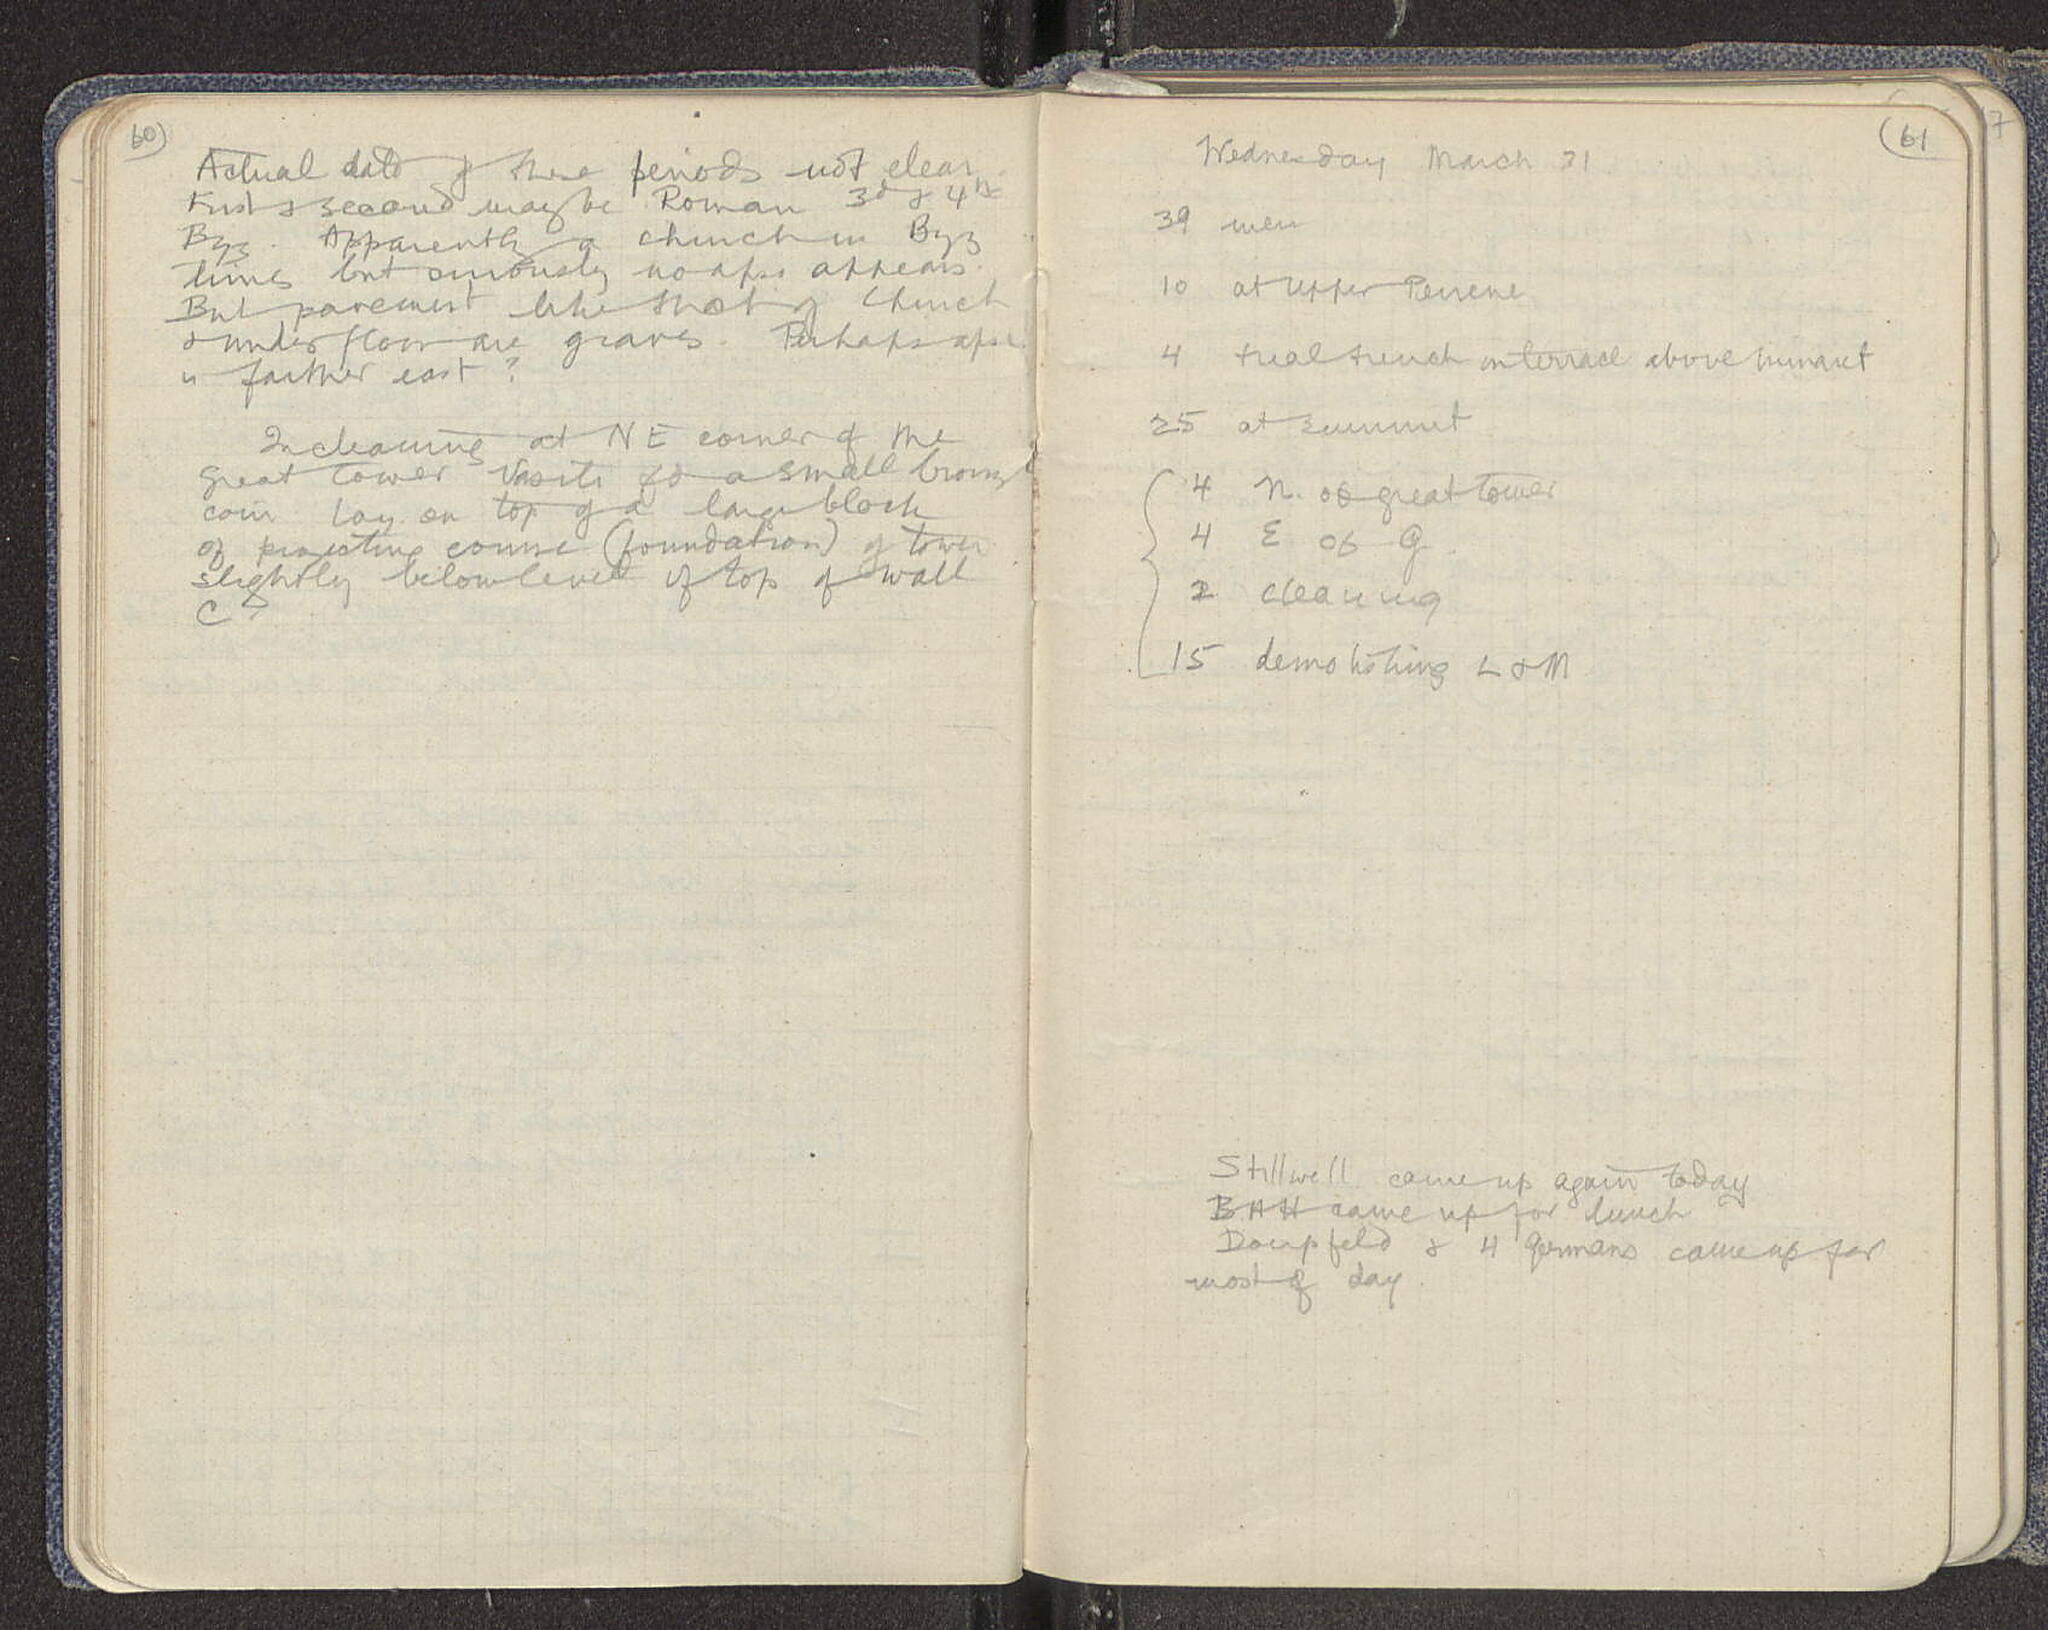 60)
Actual date of these periods not clear.
First & second may be Roman 3d & 4th
Byz. Apparently a church in Byz
times but curiously no apse appears.
But pavement like that of church
& under floor are graves. Perhaps apse
is farther east?
In cleaning at NE corner of the
great tower Vasili fd a small bronze
coin lay on top of a large block
of projecting course (foundation) of tower
slightly below level of top of wall
C
(61
Wednesday March 31
39 men
10 at Upper Peirene
4 trial trench on terrace above minaret
25 at summit
4 N. of great tower
4 E of G
2 cleaning
15 demolishing L & M
Stillwell came up again today
BHH came up for lunch
Dörpfeld & 4 Germans came up for
most of day.